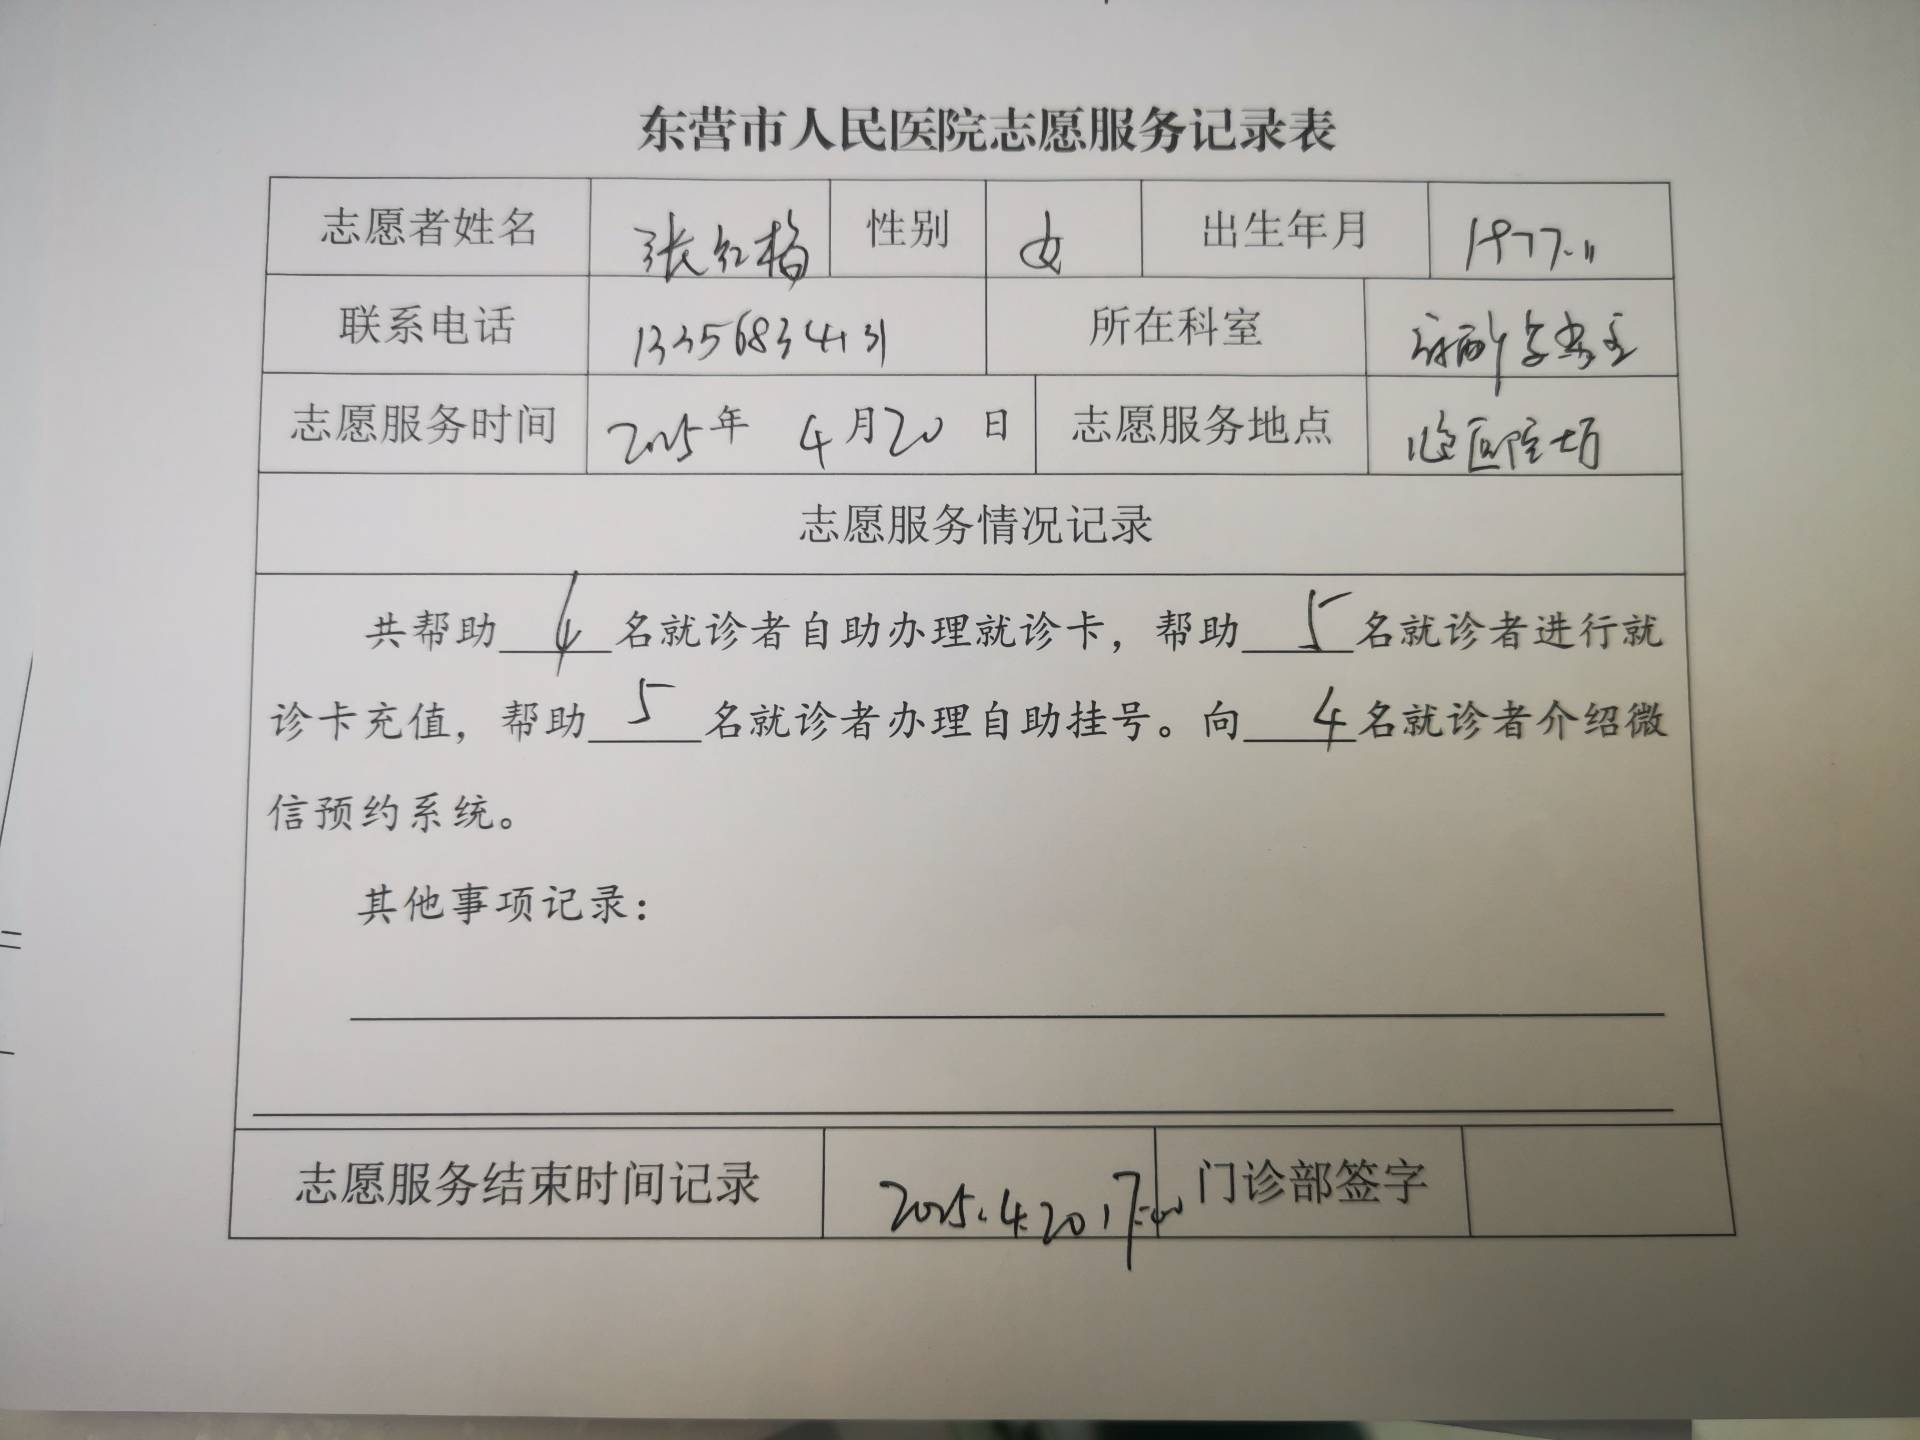 东营市人民医院志愿服务记录表
志愿者姓名 张红梅 性别 女 出生年月 1977.11
联系电话 13356834131 所在科室
志愿服务时间 2025年 4月20日 志愿服务地点
志愿服务情况记录
共帮助 4 名就诊者自助办理就诊卡，帮助 5 名就诊者进行就
诊卡充值，帮助 5 名就诊者办理自助挂号。向 4 名就诊者介绍微
信预约系统。
其他事项记录：
志愿服务结束时间记录 2025.4.20 17:00 门诊部签字